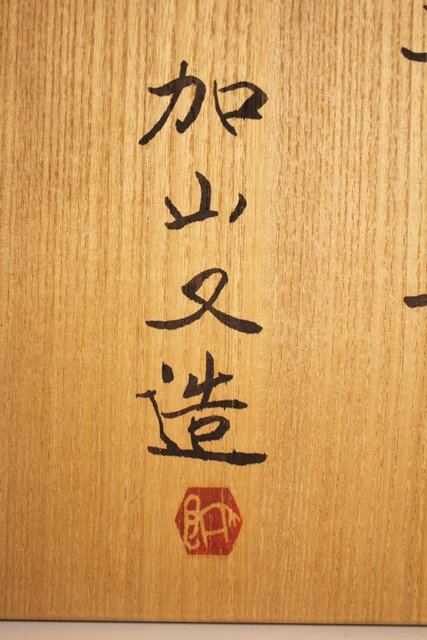 加山又造